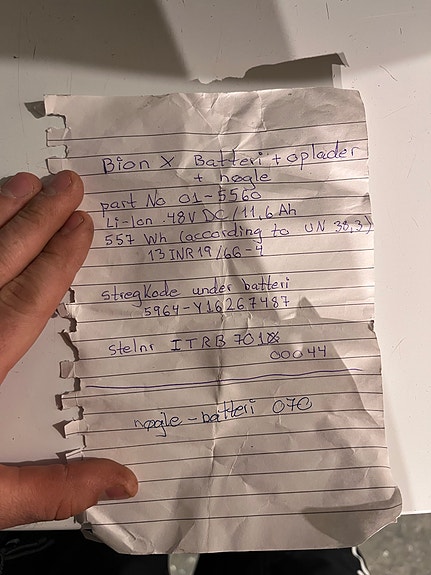 Bion X Batteri + oplader
+ nøgle
part No 01-5560
Li-Ion 48V DC/11,6 Ah
557 Wh (according to UN 38,3)
13 INR19/66-4
stregkode under batteri
5964-Y16267487
Stelnr ITRB 701
00044
nøgle-batteri 070